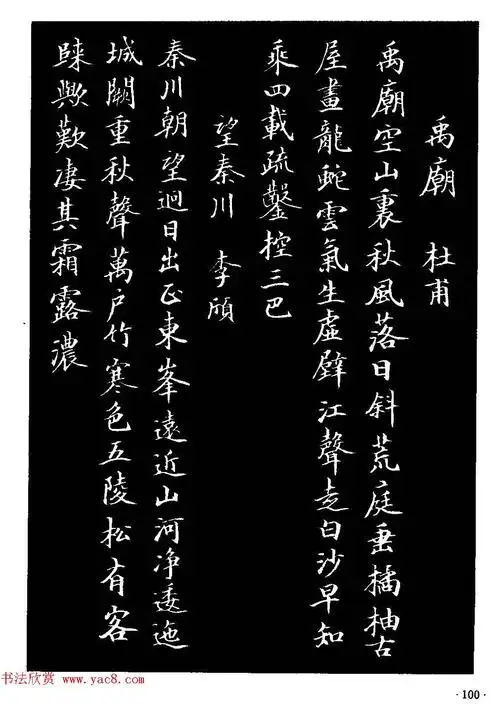 禹廟 杜甫
禹廟空山裏秋風落日斜荒庭垂橘柚古
屋畫龍蛇雲氣生虛壁江聲走白沙早知
乘四載疏鑿控三巴
望秦川 李頎
秦川朝望迥日出正東峯遠近山河净逶迤
城闕重秋聲萬户竹寒色五陵松有客
歸歟歎凄其霜露濃
书法欣赏 www.yac8.com
·100·